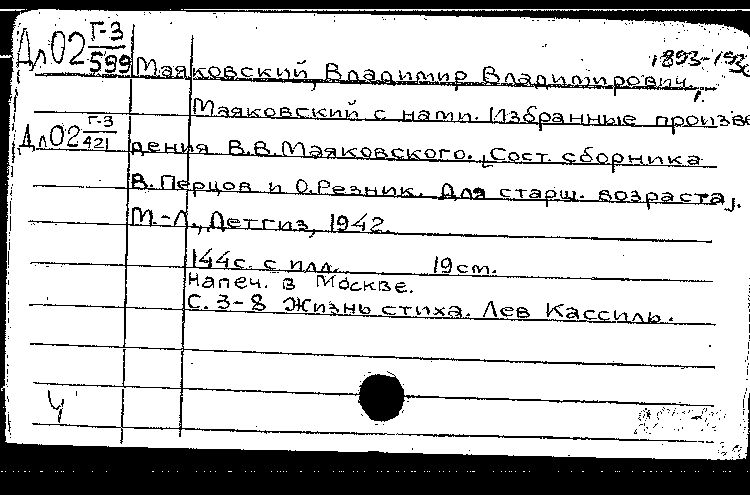 Дл02 Г-3/599 Маяковский, Владимир Владимирович, 1893-1930
Маяковский с нами. Избранные произве
Дл02 Г-3/421 дения В.В.Маяковского. [Сост. сборника
В. Перцов и О.Резник. Для старш. возраста].
М.-Л., Детгиз, 1942.
144с. с илл. 19см.
Напеч. в Москве.
С. 3-8 Жизнь стиха. Лев Кассиль.
Ч